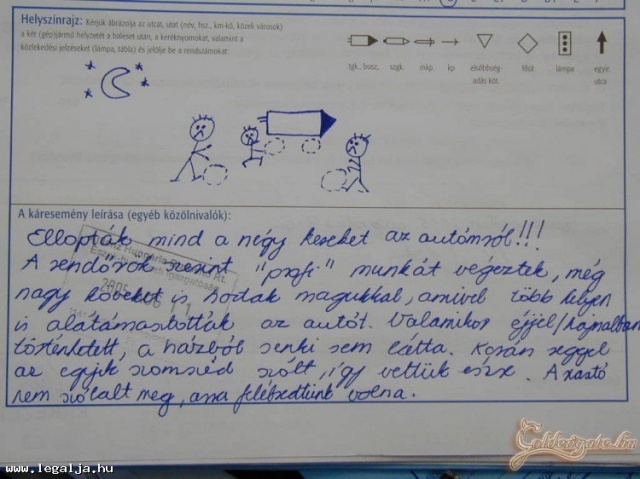 Helyszínrajz: Kérjük ábrázolja az utcát, utat (név, hsz., km-kő, közeli városok)
a két (gép)jármű helyzetét a baleset után, a keréknyomokat, valamint a
közlekedési jelzéseket (lámpa, tábla) és jelölje be a rendszámokat:
tgk., busz, szgk. mkp. kp elsőbbség- főút lámpa egyir.
adás köt. utca
A káresemény leírása (egyéb közölnivalók):
Ellopták mind a négy kereket az autómról!!!
A rendőrök szerint "profi" munkát végeztek, még
nagy köveket is hoztak magukkal, amivel több helyen
is alátámasztották az autót. Valamikor éjjel/hajnalban
történhetett, a házból senki sem látta. Korán reggel
az egyik szomséd szólt, így vettük észre. A riasztó
nem szólalt meg, arra felébredtünk volna.
www.legalja.hu